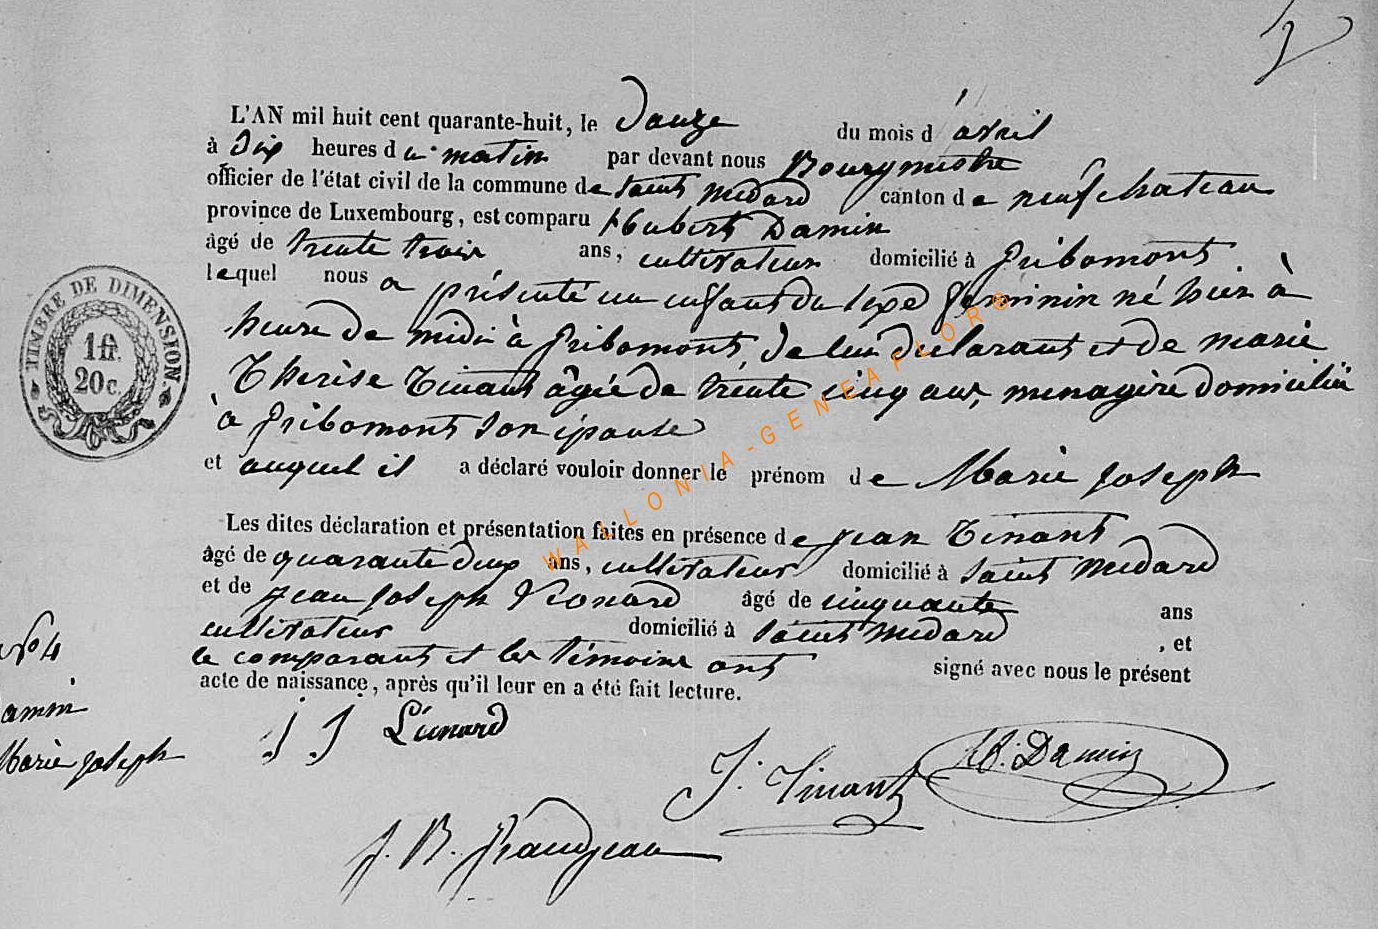 2
L'AN mil huit cent quarante-huit, le Douze du mois d'avril
à Dix heures du matin par devant nous Bourgmestre
officier de l'état civil de la commune de Saint Médard canton de neufchateau
province de Luxembourg, est comparu Hubert Damin
âgé de trente trois ans, cultivateur domicilié à Gribomont
lequel nous a présenté un enfant du sexe feminin né hier à
heure de midi à Gribomont, de lui declarant et de marie
Thérèse Tinant âgée de trente cinq ans, menagère domiciliée
à Gribomont son épouse
et auquel il a déclaré vouloir donner le prénom de Marie Joseph
Les dites déclaration et présentation faites en présence de jean Tinant
âgé de quarante deux ans, cultivateur domicilié à Saint Médard
et de jean joseph Léonard âgé de cinquante ans
cultivateur domicilié à Saint Médard, et
le comparant et les témoins ont signé avec nous le présent
acte de naissance, après qu'il leur en a été fait lecture.
TIMBRE DE DIMENSION.
1 fr.
20 c.
N° 4
amin
Marie joseph
J J Léonard
J. Tinant
H. Damin
J. B.
WALLONIA-GENEAFLORE